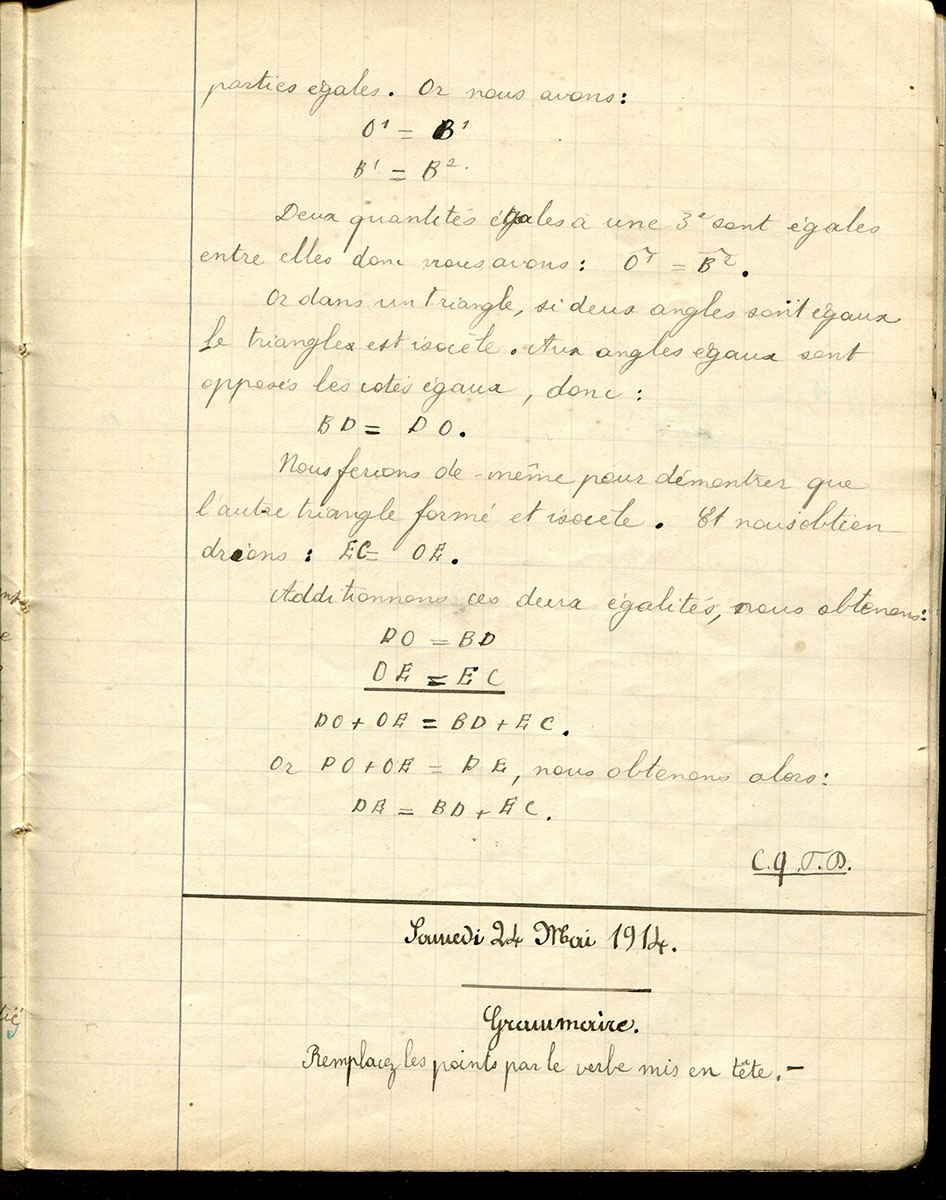 parties égales. Or nous avons:
O¹ = B¹
B¹ = B².
Deux quantités égales à une 3e sont égales
entre elles donc nous avons: O¹ = B².
Or dans un triangle, si deux angles sont égaux
le triangle est isocèle. Aux angles égaux sont
opposés les cotés égaux, donc:
BD = DO.
Nous ferions de même pour démontrer que
l'autre triangle formé et isocèle. Et nous obtien-
drions: EC = OE.
Additionnons ces deux égalités, nous obtenons:
DO = BD
OE = EC
DO + OE = BD + EC.
Or DO + OE = DE, nous obtenons alors:
DE = BD + EC.
C.Q.F.D.
Samedi 24 Mai 1914.
Grammaire.
Remplacez les points par le verbe mis en tête.-